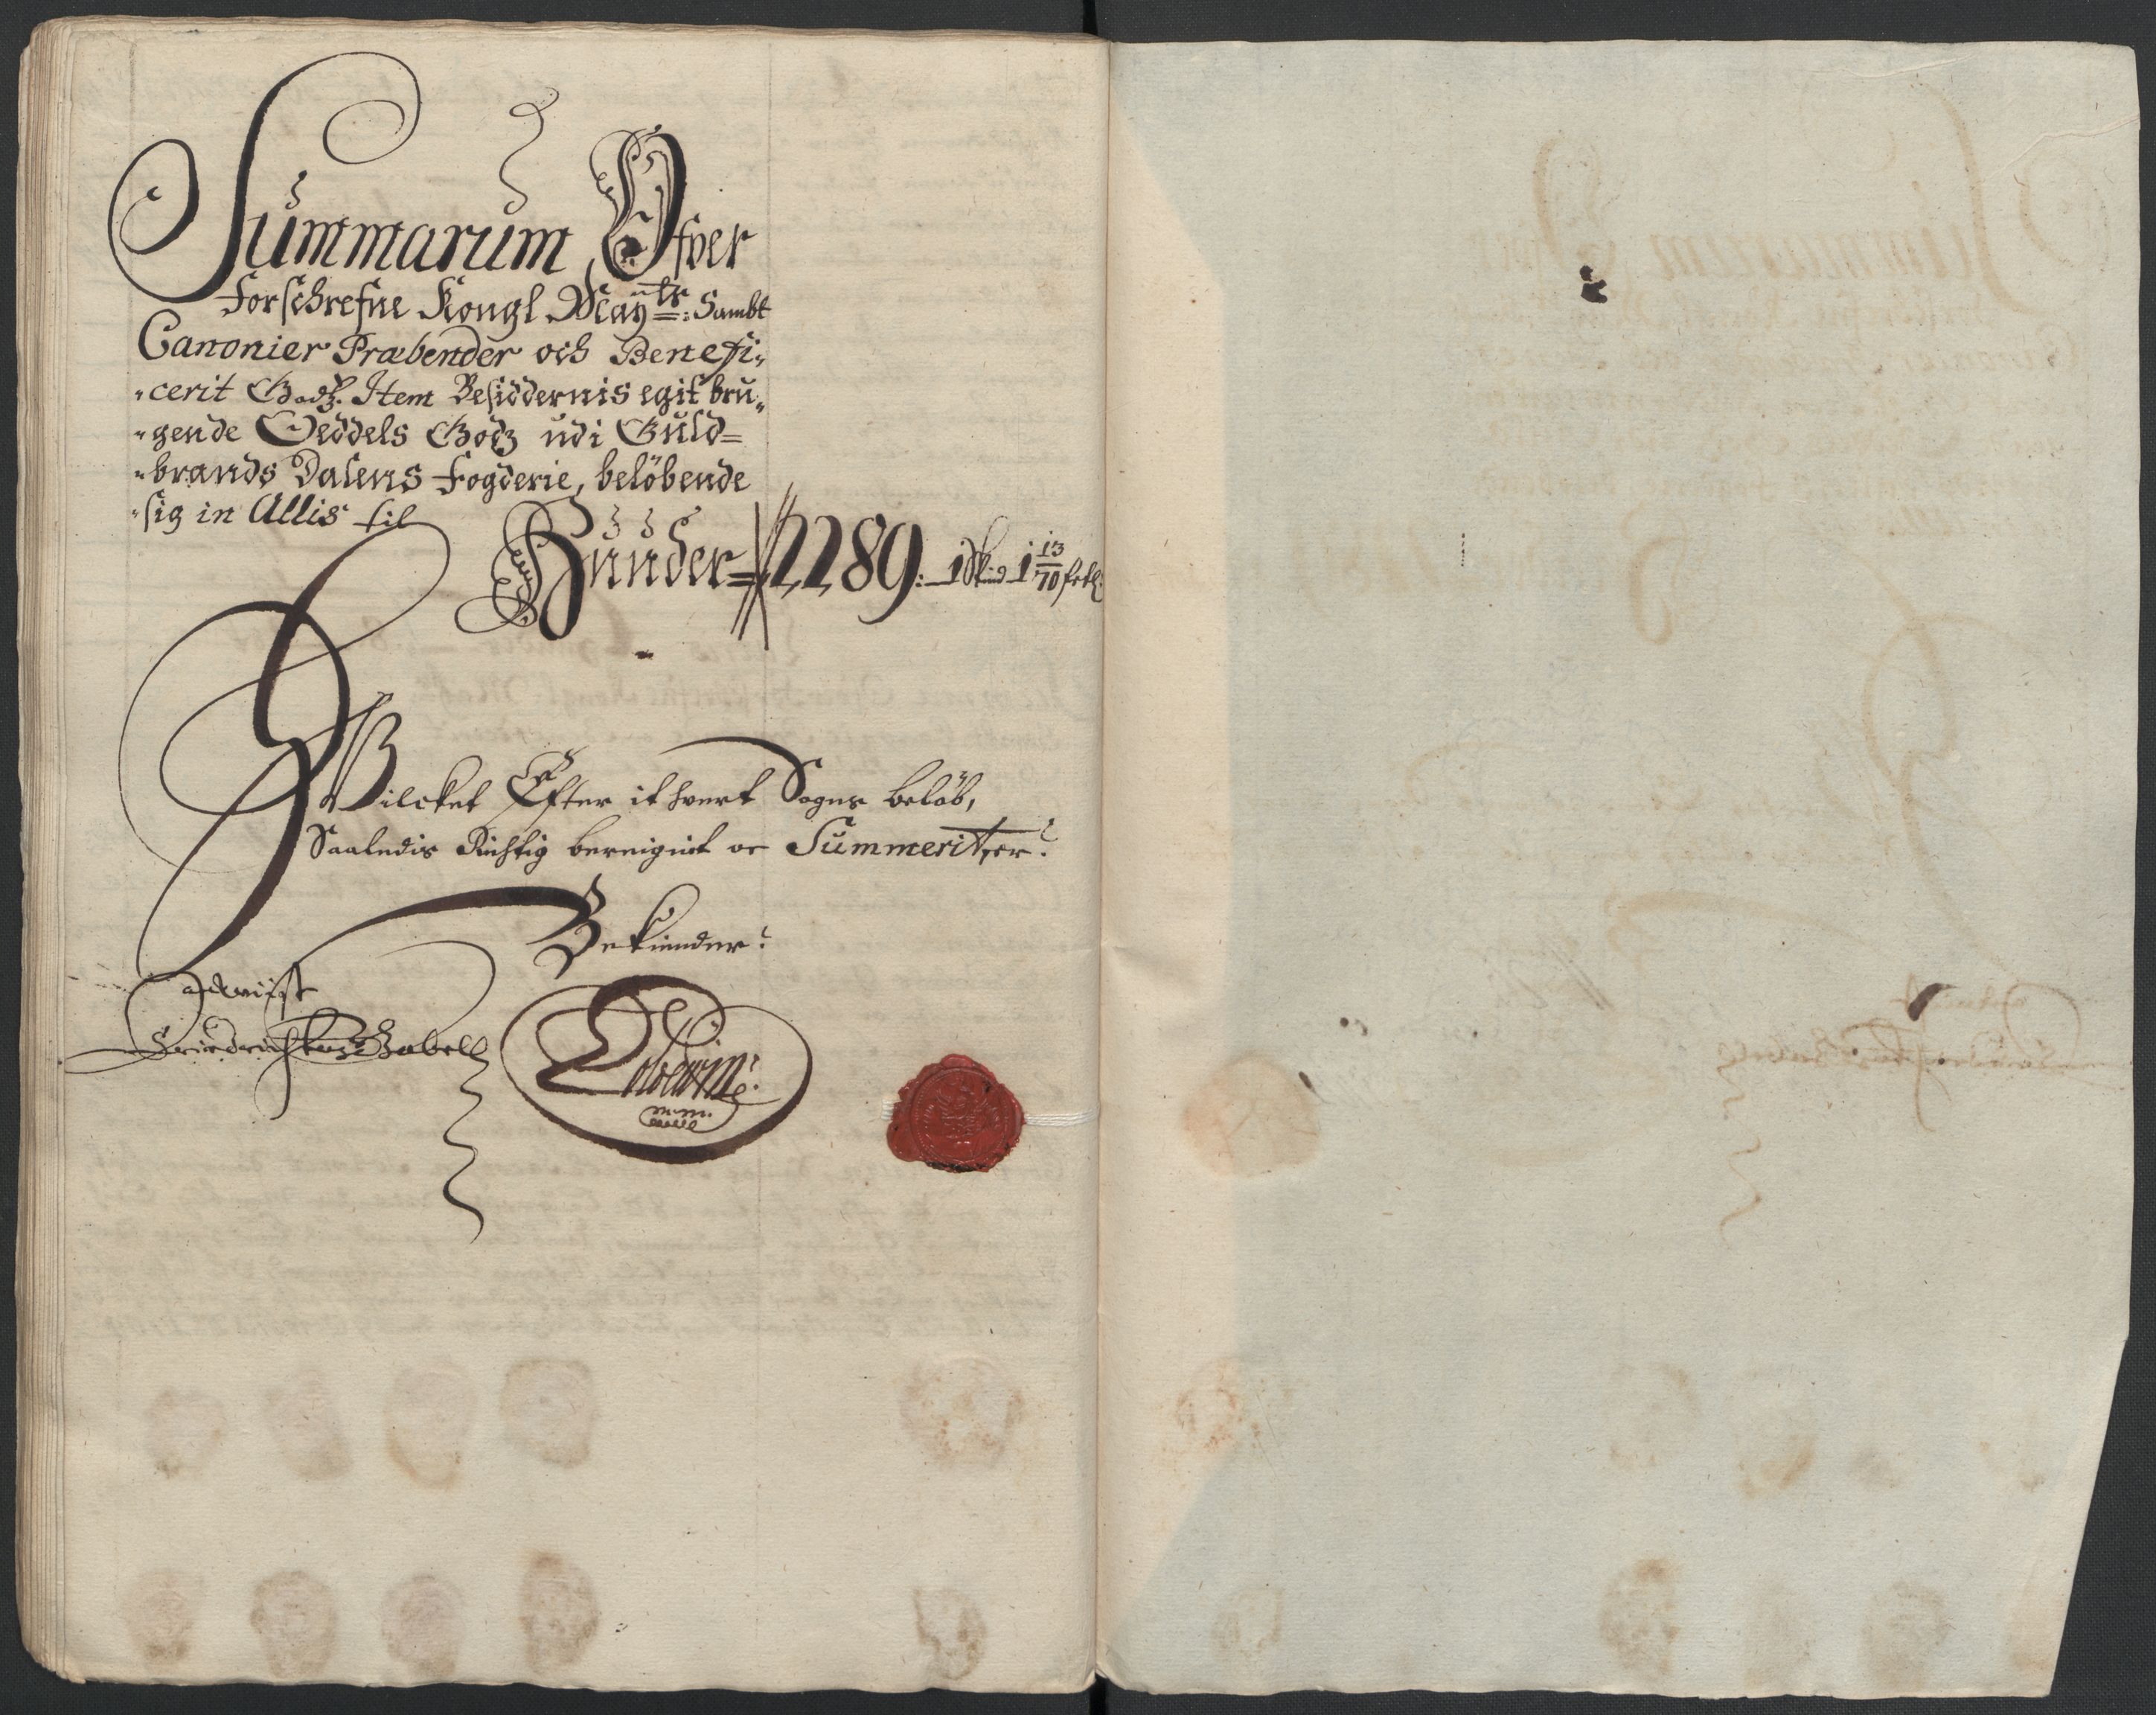 Summarum Ofver
forschrefne Kongl May.ts: Sambt
Canonier Præbender och Benefi„
„cerit Godz. Item Besiddernis egit bru„
„gende Oeddels Godz udi Guld=
„brands Dalens fogderie, beløbende
„sig in Allis til
Hunder= 2289: 1 Skind 1 13/70 
Vilcket Efter it hvert Sogns beløb,
Saaledis Richtig beregnit oc Summerit, er?
Bekiender?
m.m.